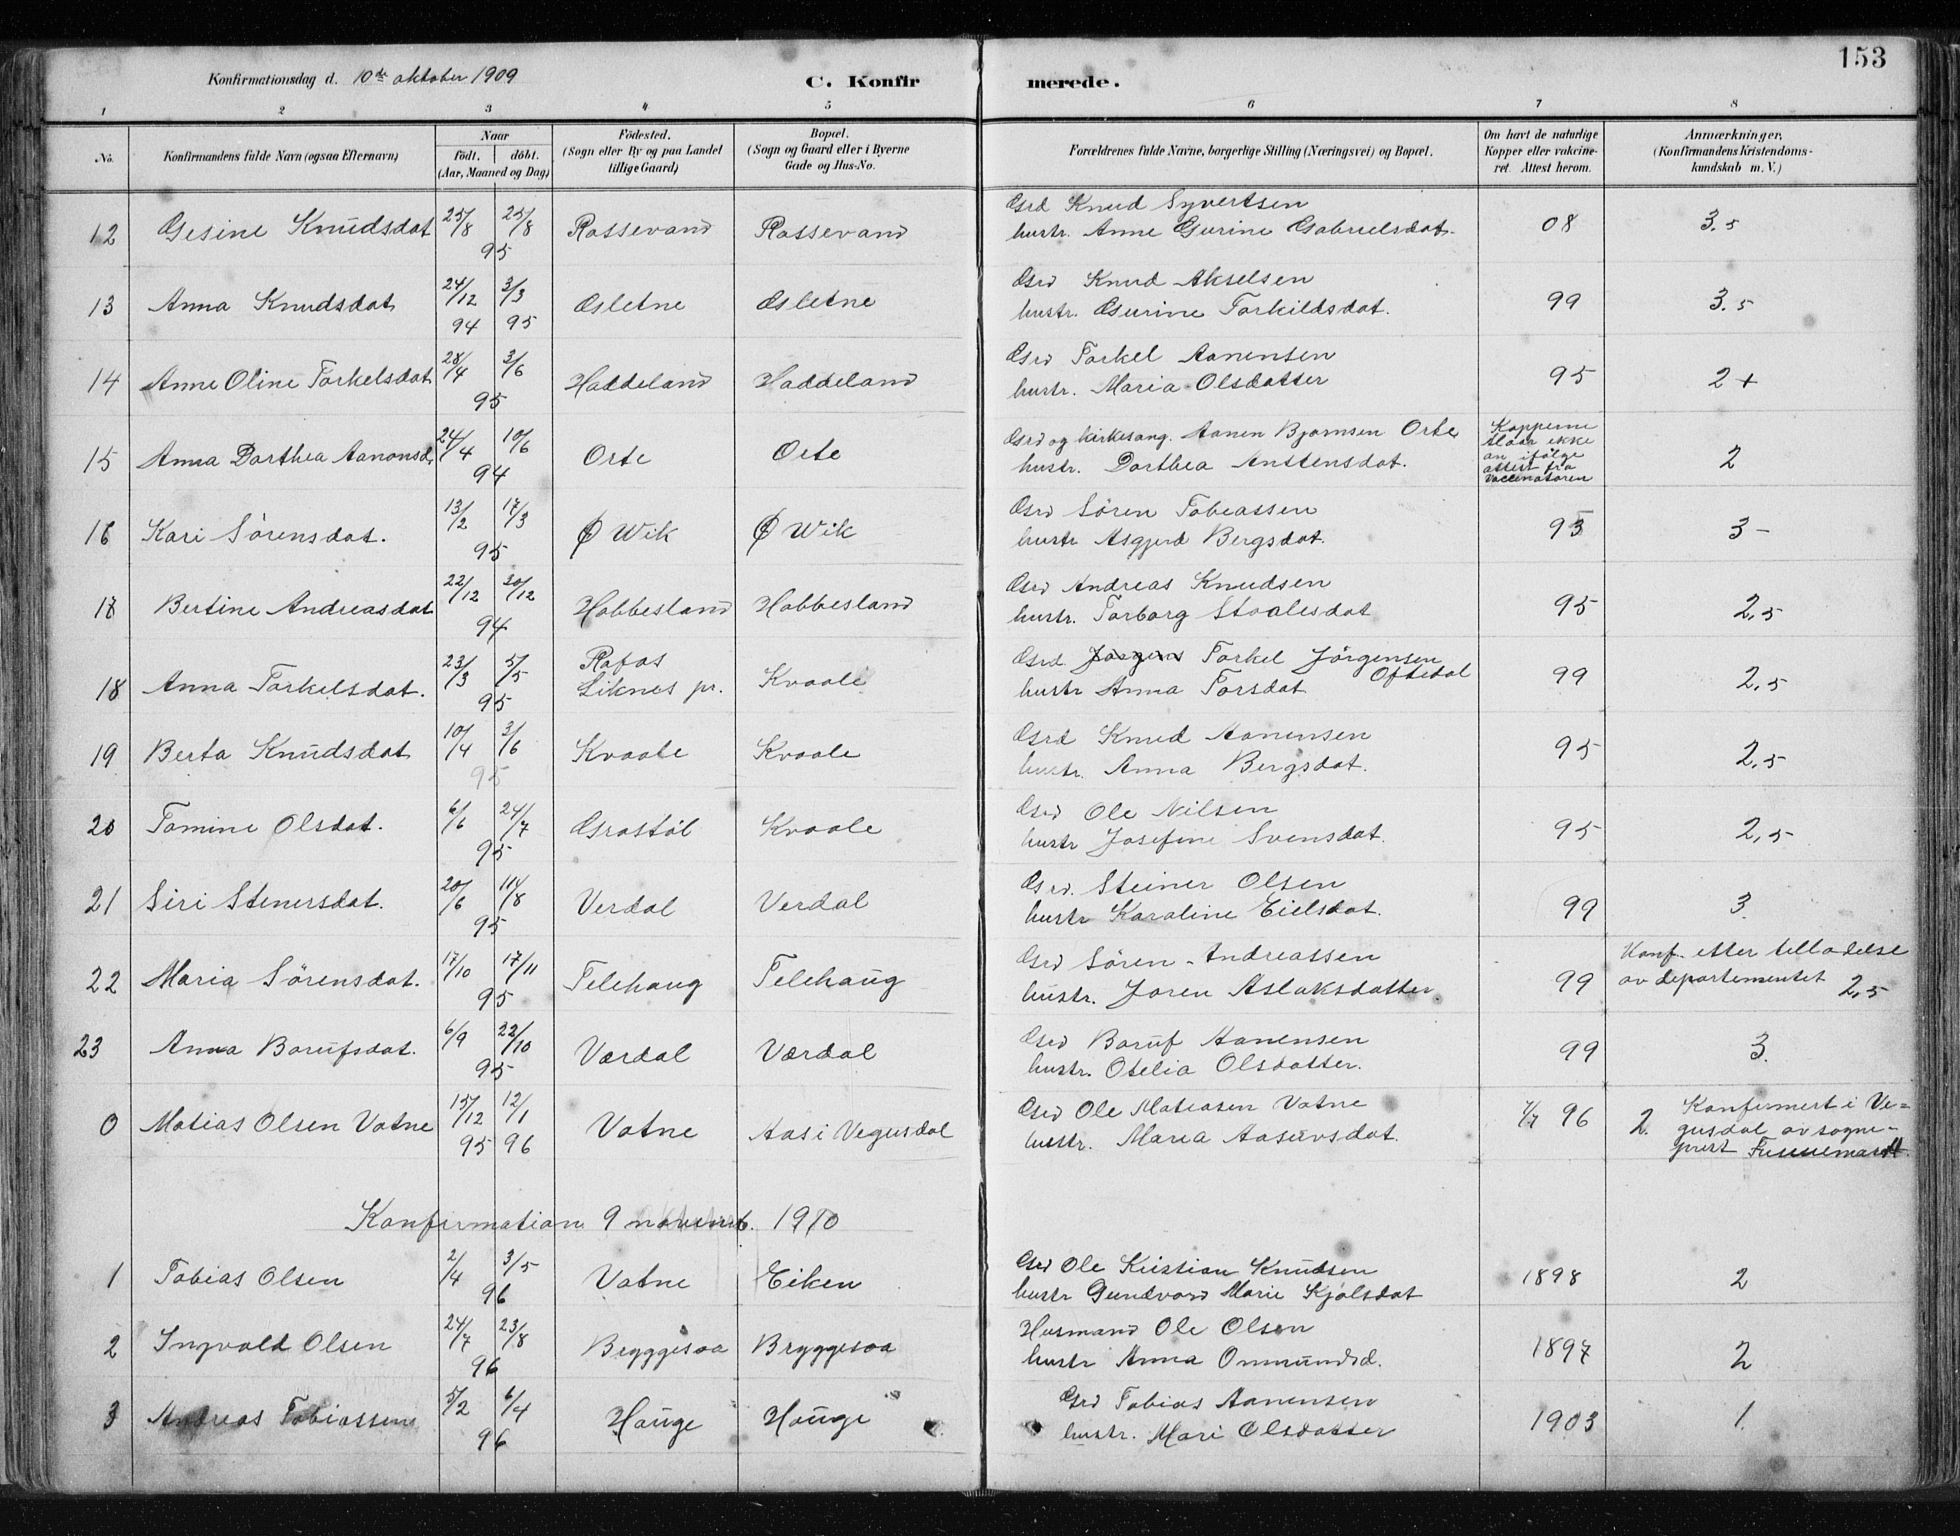 153
Konfirmationsdag d. 10de oktober 1909
C. Konfirmerede.
1 2 3 4 5 6 7 8
No. Konfirmandens fulde Navn (ogsaa Efternavn) Naar födt. döbt. (Aar, Maaned og Dag) Födested. (Sogn eller By og paa Landet tillige Gaard) Bopæl. (Sogn og Gaard eller i Byerne Gade og Hus-No. Forældrenes fulde Navne, borgerlige Stilling (Næringsvei) og Bopæl. Om havt de naturlige Kopper eller vakcineret. Attest herom. Anmærkninger. (Konfirmandens Kristendomskundskab m. V.)
12 Gesine Knudsdat 25/8 25/8 95 Rossevand Rossevand Grd Knud Syvertsen
hustr. Anne Gurine Gabrielsdat. 08 3.5
13 Anna Knudsdat 24/12 94 3/3 95 Osletne Osletne Grd Knud Akselsen
hustr. Gurine Torkildsdat. 99 3.5
14 Anne Oline Torkelsdat 28/4 3/6 95 Haddeland Haddeland Grd Torkel Aanensen
hustr. Maria Olsdatter 95 2+
15 Anna Dorthea Aanonsd. 24/4 10/6 94 Orte Orte Grd og kirkesang. Aanen Bjornsen Orte
hustr. Dorthea Anstensdat. Kopperne slaar ikke an ifølge attest fra Vaccinatøren 2
16 Kari Sörensdat. 13/2 17/3 95 Ø Wik Ø Wik Grd Sören Tobiassen
hustr Asgjerd Bergsdat. 93 3-
17 Bertine Andreasdat 22/12 30/12 94 Hobbesland Hobbesland Grd Andreas Knudsen
hustr. Torborg Stoalesdat 95 2,5
18 Anna Torkelsdat. 23/3 5/5 95 Rafos Liknes pr. Kvaale Grd. Jörgens Torkel Jörgensen Oftedal
hustr Anna Torsdat 99 2,5
19 Berta Knudsdat 10/4 3/6 95 Kvaale Kvaale Grd Knud Aanensen
hustr. Anna Bergsdat. 95 2,5
20 Tomine Olsdat. 6/6 24/7 95 Grostöl Kvaale Grd Ole Nilsen
hustr Josefine Svensdat. 95 2,5
21 Siri Stenersdat. 20/6 11/8 95 Verdal Verdal Grd. Steiner Olsen
hustr Karoline Eielsdat. 99 3.
22 Maria Sörensdat. 17/10 17/11 95 Telehaug Telehaug Grd Sören Andreassen
hustr. Joren Aslaksdatter. 99 Konf. etter tilladelse av departementet 2,5
23 Anna Borufsdat. 6/9 22/10 95 Værdal Værdal Grd Boruf Aanensen
hustr. Otelia Olsdatter. 99 3.
0 Matias Olsen Vatne 15/12 95 12/1 96 Vatne Aas i Vegusdal Grd Ole Matiasen Vatne
hustr. Maria Aasulvsdat. 7/7 96 2. Konfirmert i Vegusdal av sogneprest
Konfirmation 9 novemb. 1910
1 Tobias Olsen 2/4 3/5 96 Vatne Eiken Grd Ole Kristian Knudsen
hustr Gundvor Marie Kjölsdat 1898 2
2 Ingvald Olsen 24/7 23/8 96 Bryggesaa Bryggesaa Husmand Ole Olsen
hustr Anna Onmundsd. 1897 2
3 Andreas Tobiassen 5/2 6/4 96 Hauge Hauge Grd Tobias Aanensen
hustr. Mari Olsdatter 1903 1.